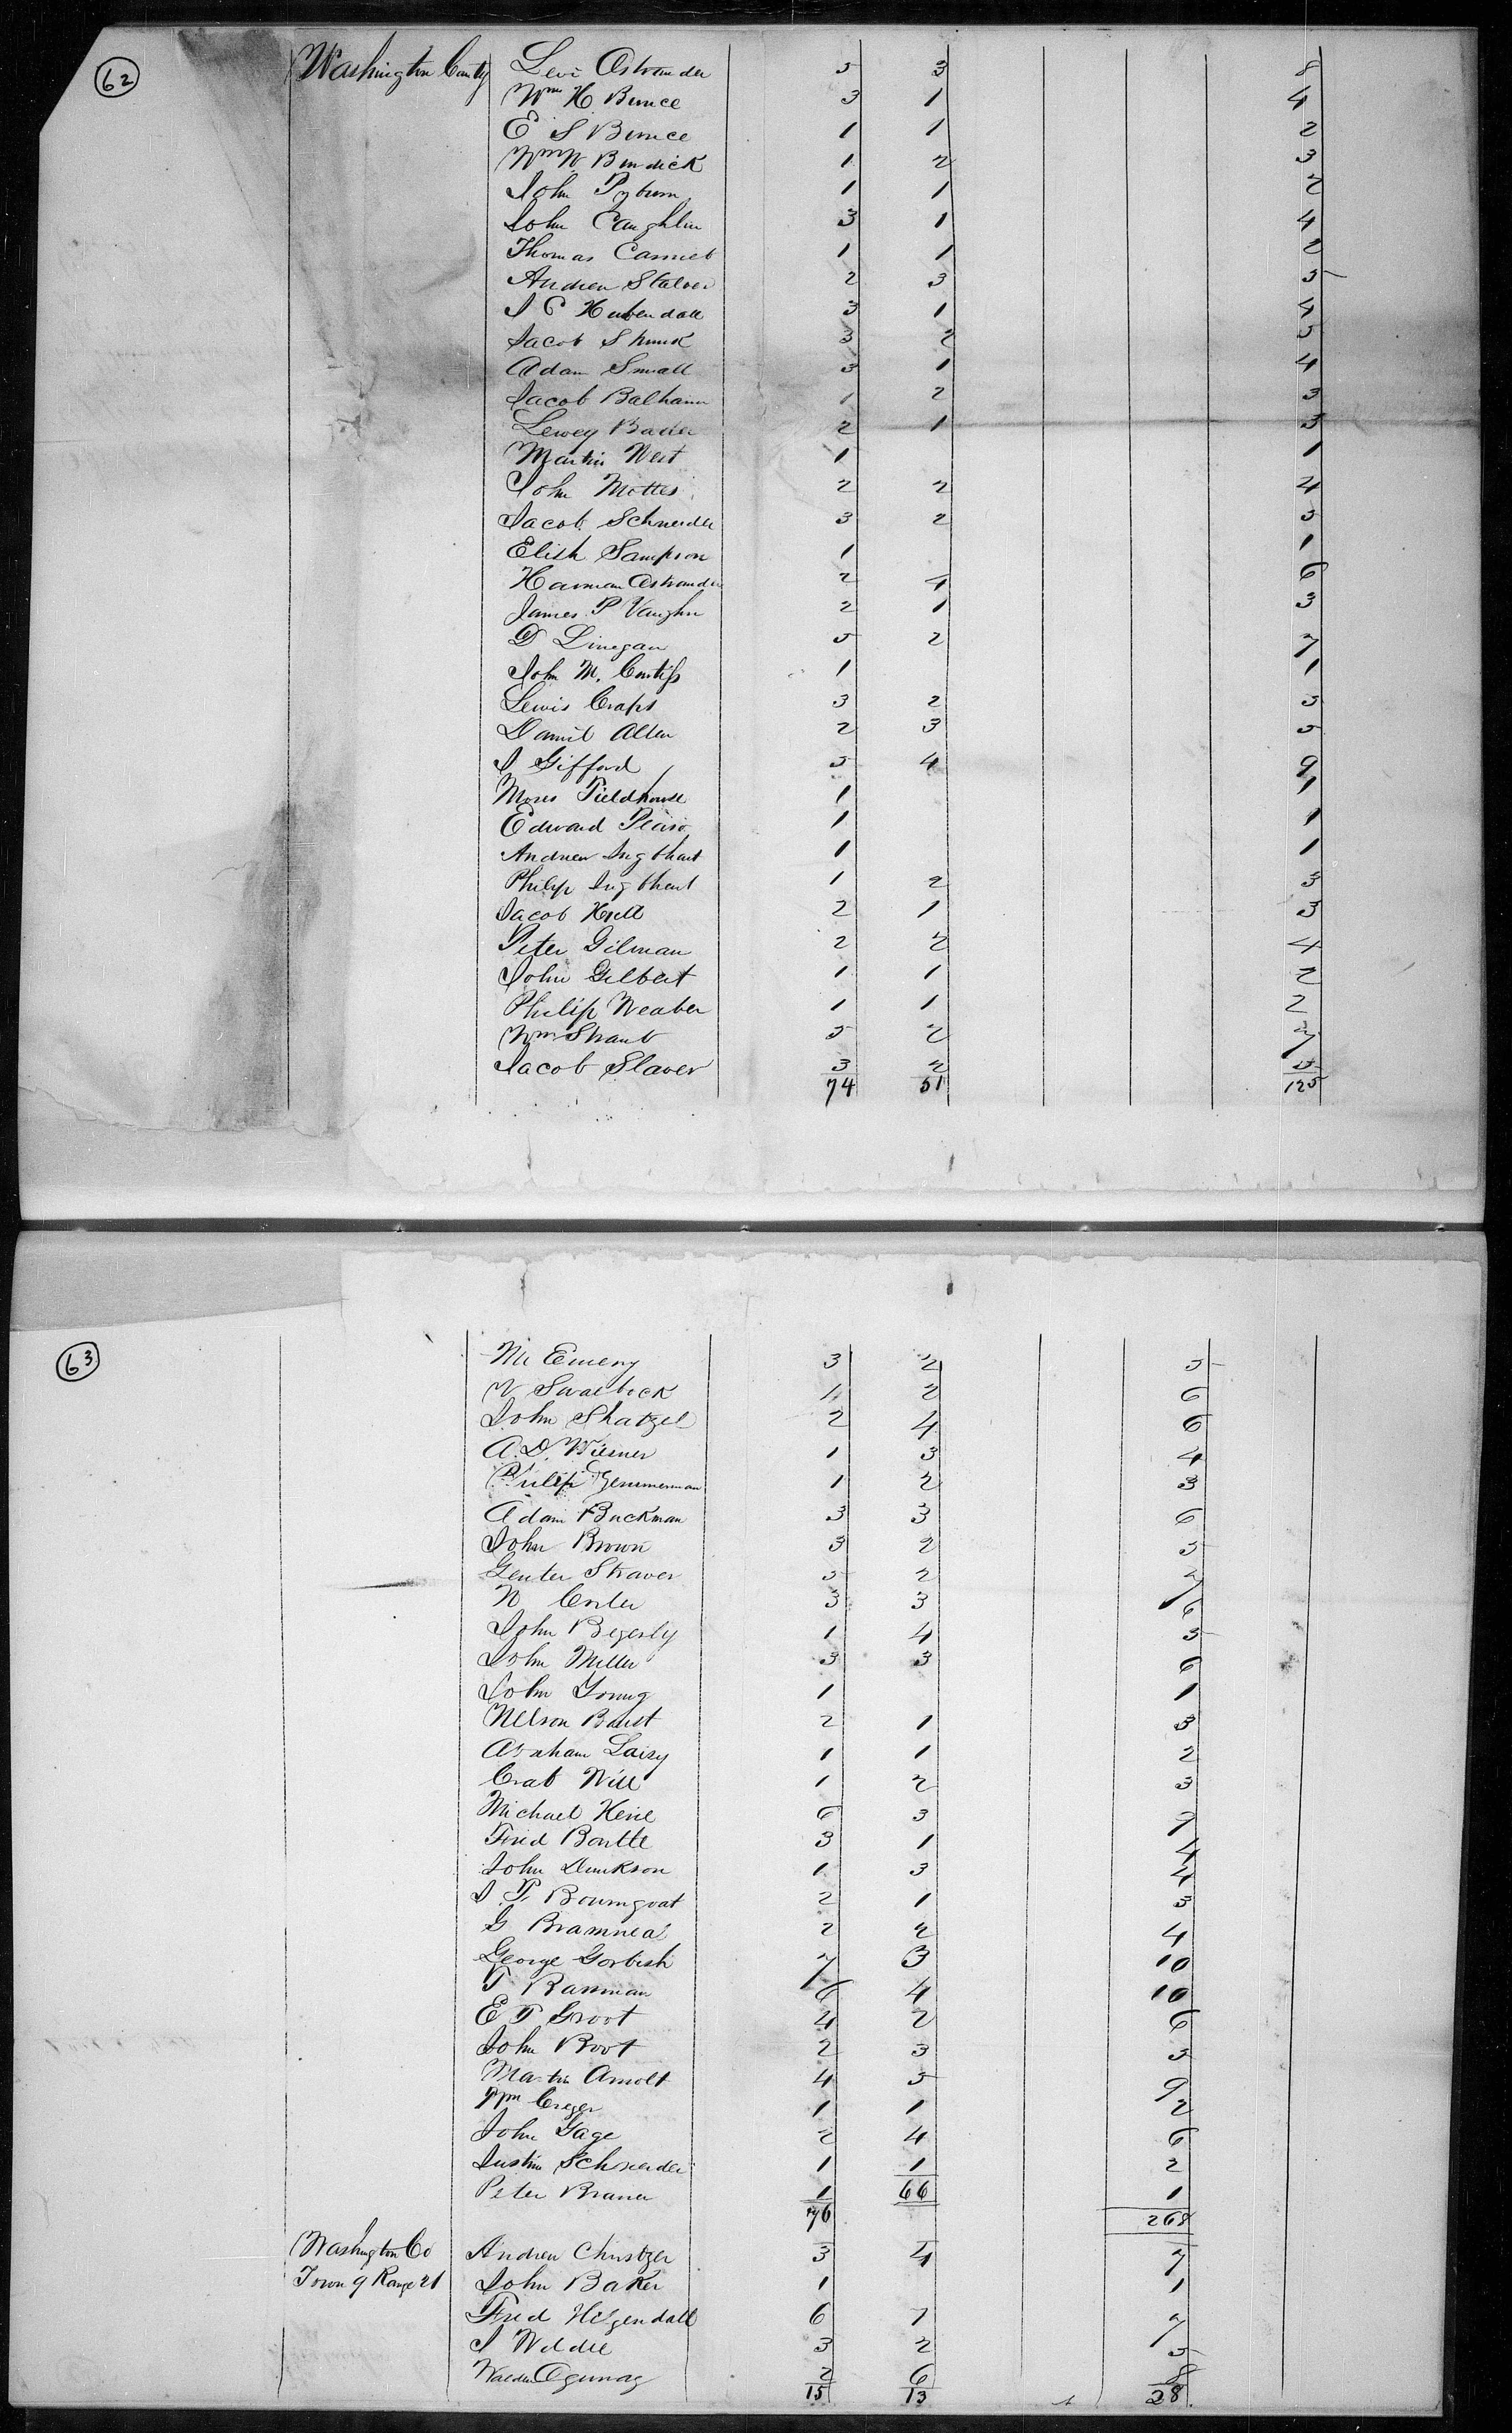 62
Washington County Levi Ostrander 5 3 8
Wm H Bunce 3 1 4
E S Bunce 1 1 2
Wm W. Burdick 1 2 3
John Pyburn 1 1 2
John Caughlin 3 1 4
Thomas 1 1 2
Andrew Stalver 2 3 5
3 1 4
Jacob Shunk 3 2 5
Adam Small 3 1 4
Jacob Balhann 1 2 3
Lewey Bader 2 1 3
Martin West 1 1
John Mottes 2 2 4
Jacob Schneider 3 2 5
Elish Sampson 1 1
Harman Ostrander 2 4 6
James P Vaughn 2 1 3
D Linegan 5 2 7
John M. Curtiss 1 1
Lewis Crapt 3 2 5
Daniel Allen 2 3 5
J Gifford 5 4 9
Moses Fieldhouse 1 1
Edward 1 1
Andrew Ingthart 1 1
Philip Ingthart 1 2 3
Jacob Hill 2 1 3
Peter Gilman 2 2 4
John Gilbert 1 1 2
Philip Weaber 1 1 2
Wm Straub 5 2 7
Jacob Slaver 3 2 5
74 51 125
63
Mr Emery 3 2 5
4 2 6
John Shatzel 2 4 6
A. D. Wiesner 1 3 4
Philip Zemmerman 1 2 3
Adam Buckman 3 3 6
John Brown 3 2 5
Genter Straver 5 2 7
N 3 3 6
John Begerly 1 4 5
John Miller 3 3 6
John Young 1 1
Nelson Burst 2 1 3
Abraham Laisy 1 1 2
Crab Will 1 2 3
Michael Heise 6 3 9
Fried Bontte 3 1 4
John Dunkson 1 3 4
J. P. Boumgoat 2 1 3
G Bramnea 2 2 4
George Gorbish 7 3 10
P Rassman 6 4 10
E P Groot 4 2 6
John Root 2 3 5
Martin Arnolt 4 5 9
Wm Creger 1 1 2
John Gage 2 4 6
Justin Schneider 1 1 2
Peter Braner 1 66 1
76 268
Washington Co Andrew Christzer 3 4 7
Town 9 Range 21 John Baker 1 1
Fred Helgendall 6 1 7
J Weddle 3 2 5
2 6 8
15 13 28